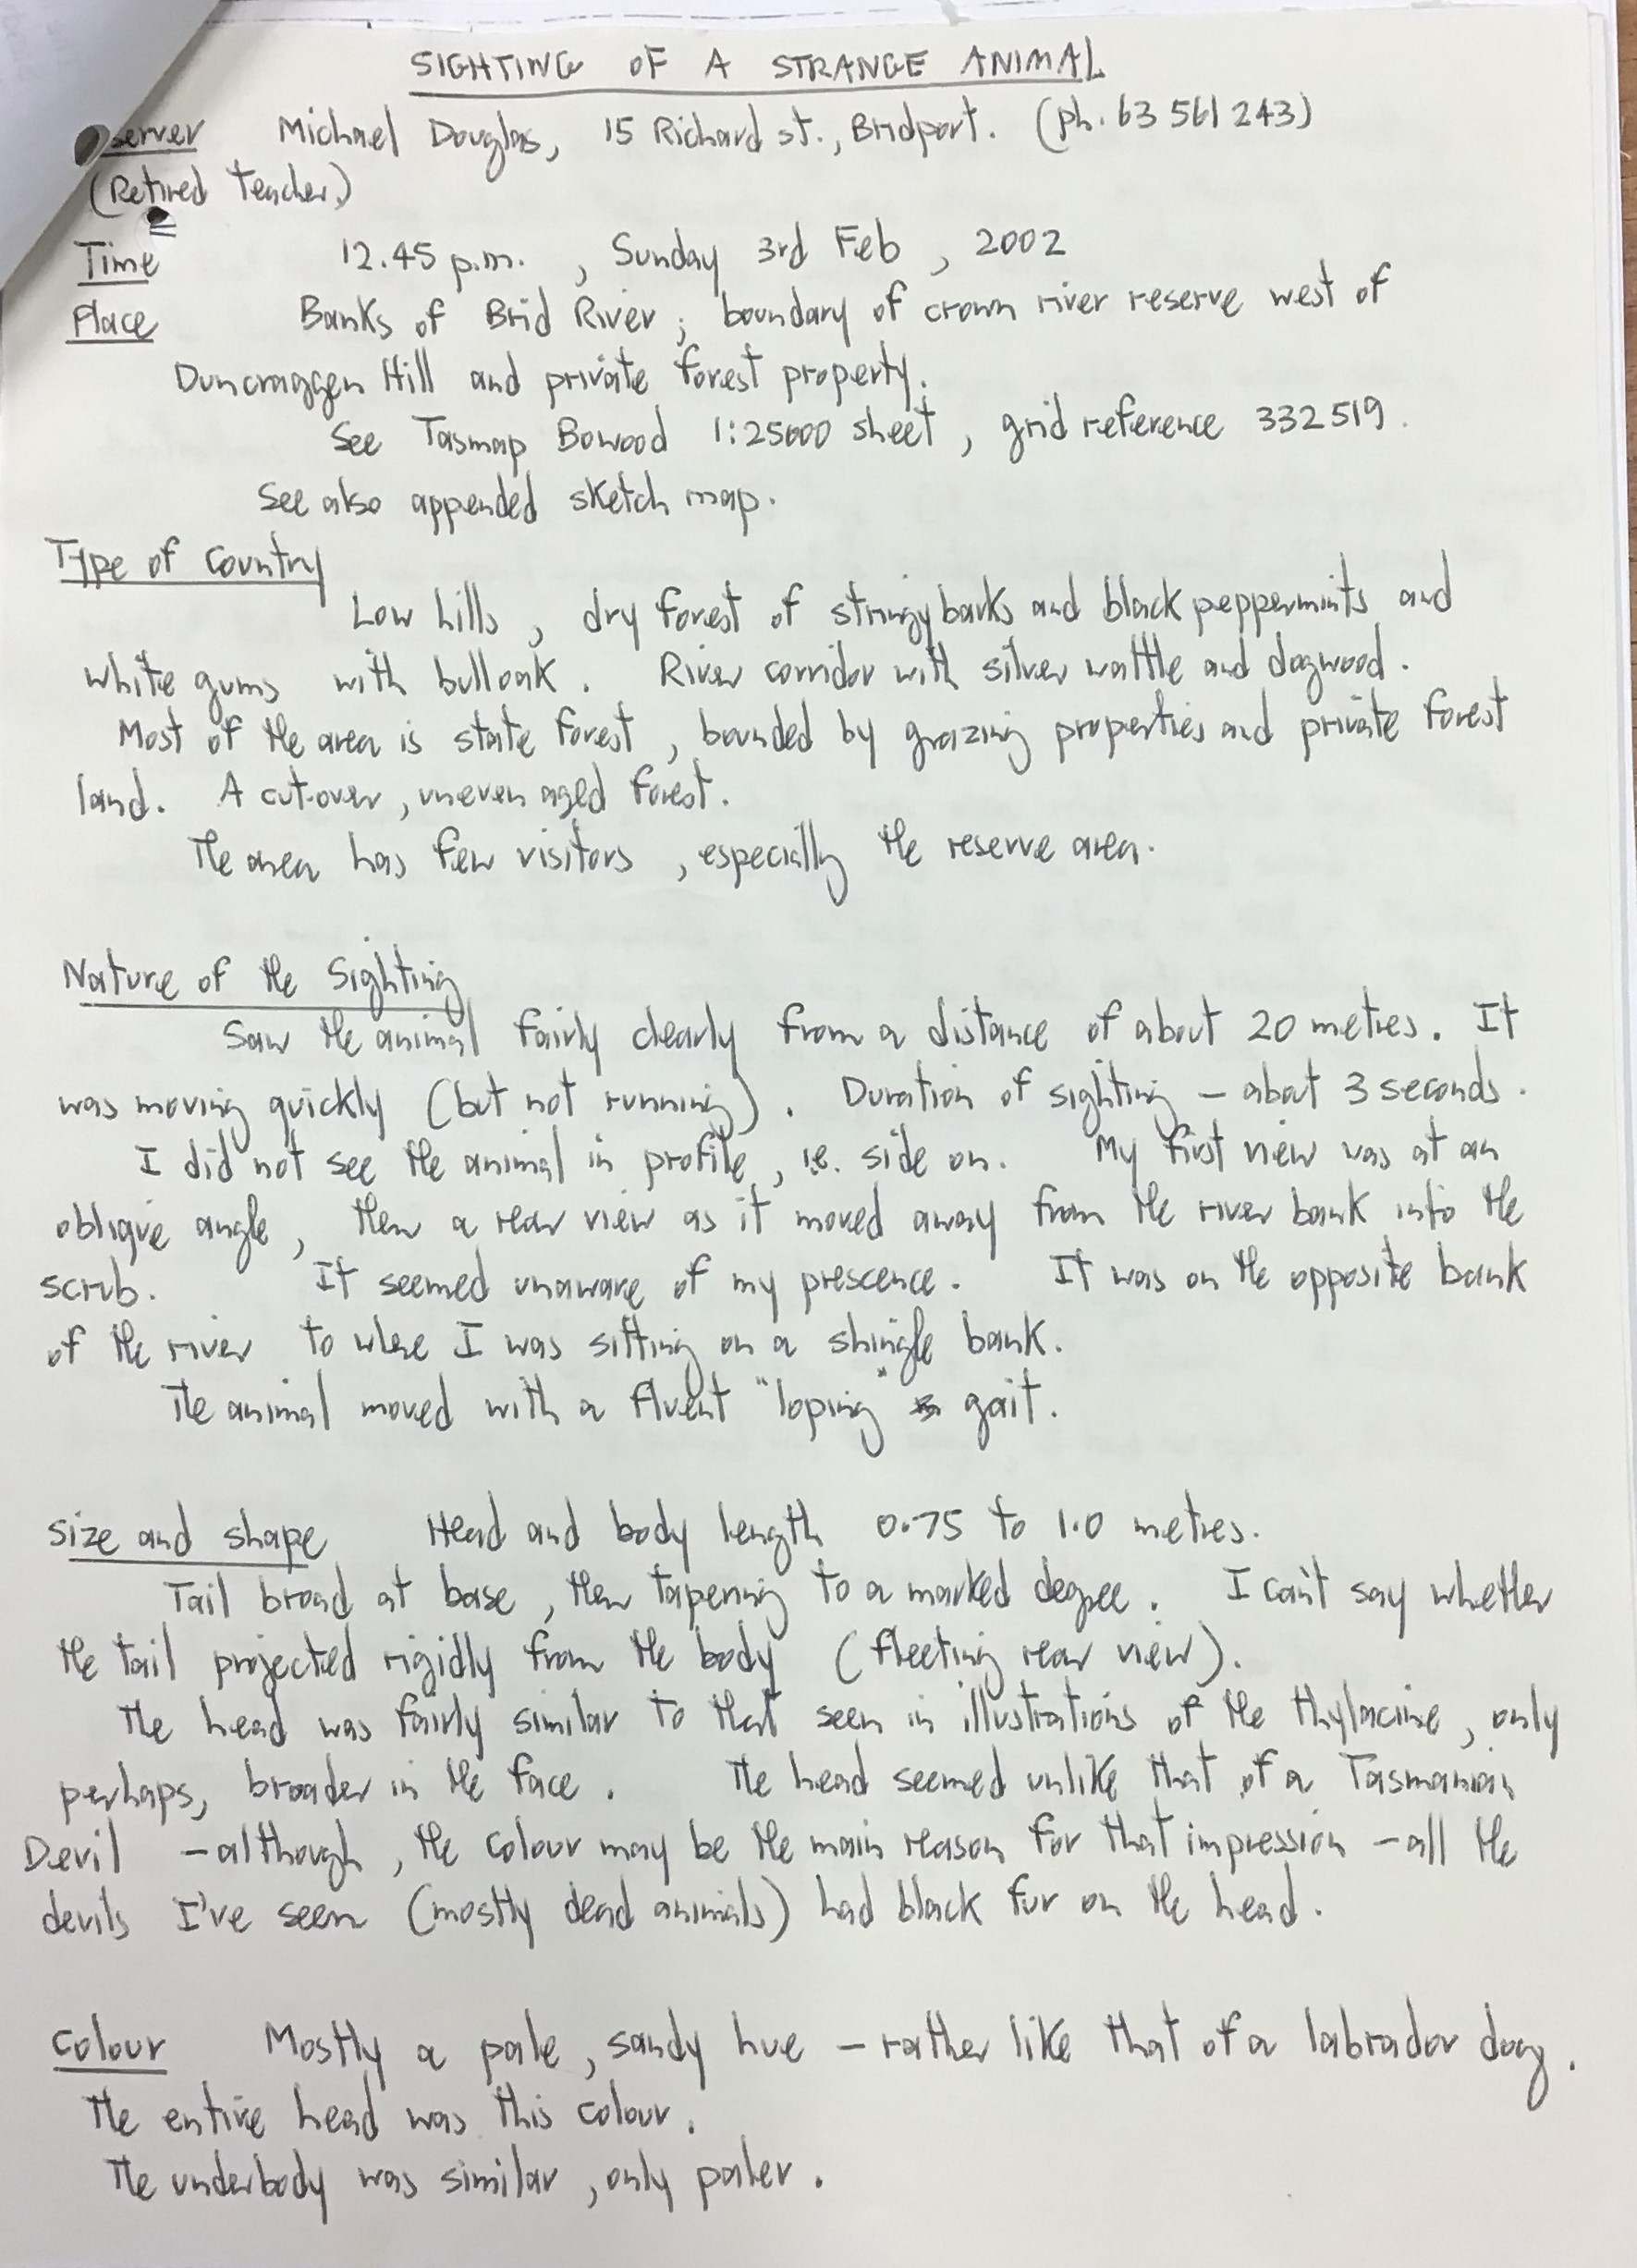 SIGHTING OF A STRANGE ANIMAL
server Michael Douglas, 15 Richard st., Bridport. (ph. 63 561 243)
(Retired teacher)
Time 12.45 p.m. , Sunday 3rd Feb , 2002
Place Banks of Brid River ; boundary of crown river reserve west of
Duncraggen Hill and private forest property.
See Tasmap Bowood 1:25000 sheet , grid reference 332519.
See also appended sketch map.
Type of Country
Low hills , dry forest of stringybarks and black peppermints and
white gums with bulloak. River corridor with silver wattle and dogwood.
Most of the area is state forest , bounded by grazing properties and private forest
land. A cut-over, uneven aged forest.
The area has few visitors , especially the reserve area.
Nature of the Sighting
Saw the animal fairly clearly from a distance of about 20 metres. It
was moving quickly (but not running). Duration of sighting – about 3 seconds.
I did not see the animal in profile, i.e. side on. My first view was at an
oblique angle, then a rear view as it moved away from the river bank into the
scrub. It seemed unaware of my prescence. It was on the opposite bank
of the river to where I was sitting on a shingle bank.
The animal moved with a fluent "loping" gait.
Size and shape Head and body length 0.75 to 1.0 metres.
Tail broad at base , then tapering to a marked degree. I can't say whether
the tail projected rigidly from the body (fleeting rear view).
The head was fairly similar to that seen in illustrations of the thylacine, only
perhaps, broader in the face. The head seemed unlike that of a Tasmanian
Devil – although, the colour may be the main reason for that impression – all the
devils I've seen (mostly dead animals) had black fur on the head.
Colour Mostly a pale, sandy hue – rather like that of a labrador dog.
The entire head was this colour.
The underbody was similar, only paler.